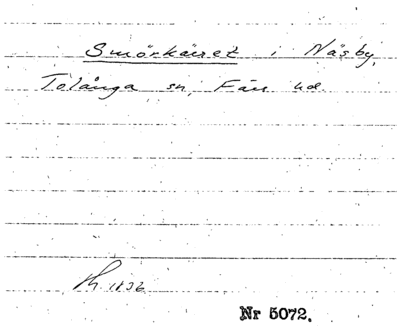 Smörkäret i Näsby,
Tolånga sn, Färs hd.
1836
Nr 5072.